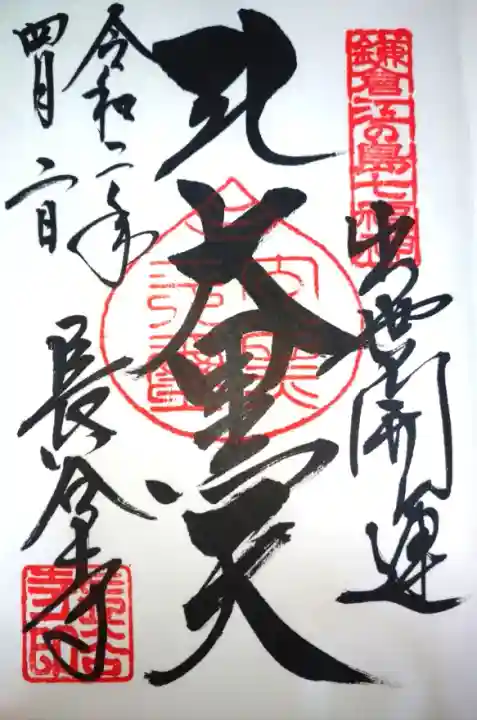 鎌倉江の島七福神
出世開運
大黒天
令和二年
四月二日
長谷寺
長谷寺印